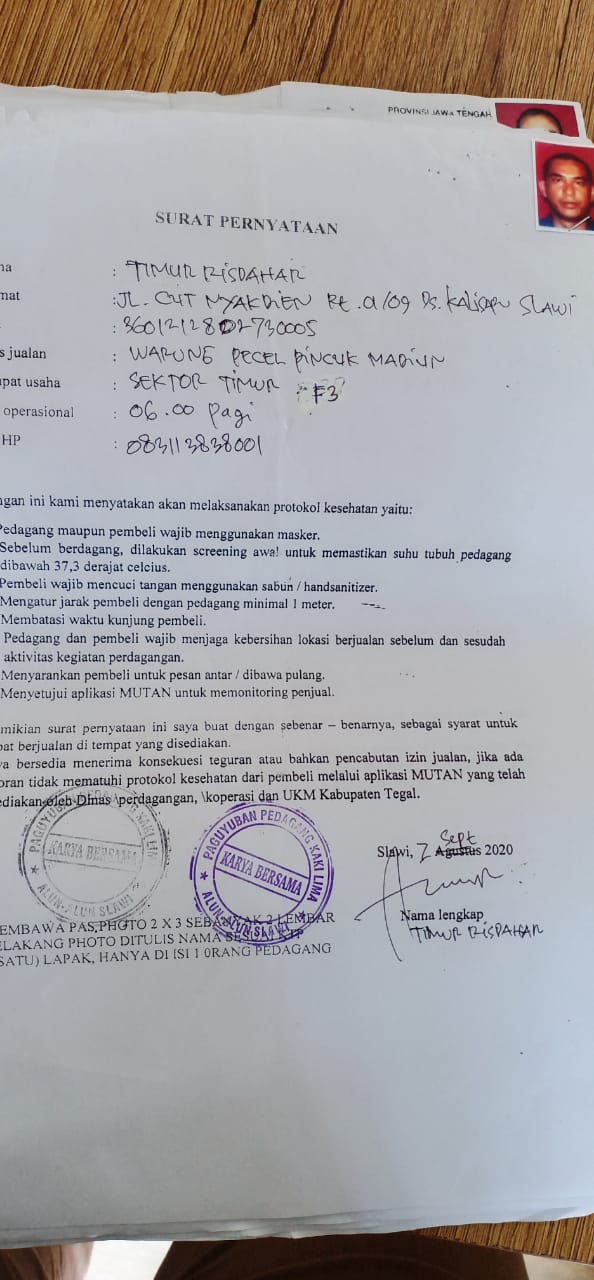 PROVINSI JAWA TENGAH
SURAT PERNYATAAN
na : TIMUR RISDAHAR
mat : JL. CUT NYAKDIEN RT. 01/09 Ds. KALISAPU SLAWI
: 3601212802730005
s jualan : WARUNG PECEL PINCUK MADIUN
pat usaha : SEKTOR TIMUR F3
operasional : 06.00 Pagi
HP : 083113838001
ngan ini kami menyatakan akan melaksanakan protokol kesehatan yaitu:
Pedagang maupun pembeli wajib menggunakan masker.
Sebelum berdagang, dilakukan screening awal untuk memastikan suhu tubuh pedagang
dibawah 37,3 derajat celcius.
Pembeli wajib mencuci tangan menggunakan sabun / handsanitizer.
Mengatur jarak pembeli dengan pedagang minimal 1 meter.
Membatasi waktu kunjung pembeli.
Pedagang dan pembeli wajib menjaga kebersihan lokasi berjualan sebelum dan sesudah
aktivitas kegiatan perdagangan.
Menyarankan pembeli untuk pesan antar / dibawa pulang.
Menyetujui aplikasi MUTAN untuk memonitoring penjual.
mikian surat pernyataan ini saya buat dengan sebenar – benarnya, sebagai syarat untuk
pat berjualan di tempat yang disediakan.
ya bersedia menerima konsekuesi teguran atau bahkan pencabutan izin jualan, jika ada
oran tidak mematuhi protokol kesehatan dari pembeli melalui aplikasi MUTAN yang telah
ediakan oleh Dinas \perdagangan, \koperasi dan UKM Kabupaten Tegal.
PAGUYUBAN PEDAGANG KAKI LIMA
KARYA BERSAMA
ALUN-ALUN SLAWI
PAGUYUBAN PEDAGANG KAKI LIMA
KARYA BERSAMA
ALUN-ALUN SLAWI
Sept
Slawi, 7 Agustus 2020
Nama lengkap
TIMUR RISDAHAR
EMBAWA PAS PHOTO 2 X 3 SEBANYAK 2 LEMBAR
ELAKANG PHOTO DITULIS NAMA SESUAI KTP
SATU) LAPAK, HANYA DI ISI 1 0RANG PEDAGANG